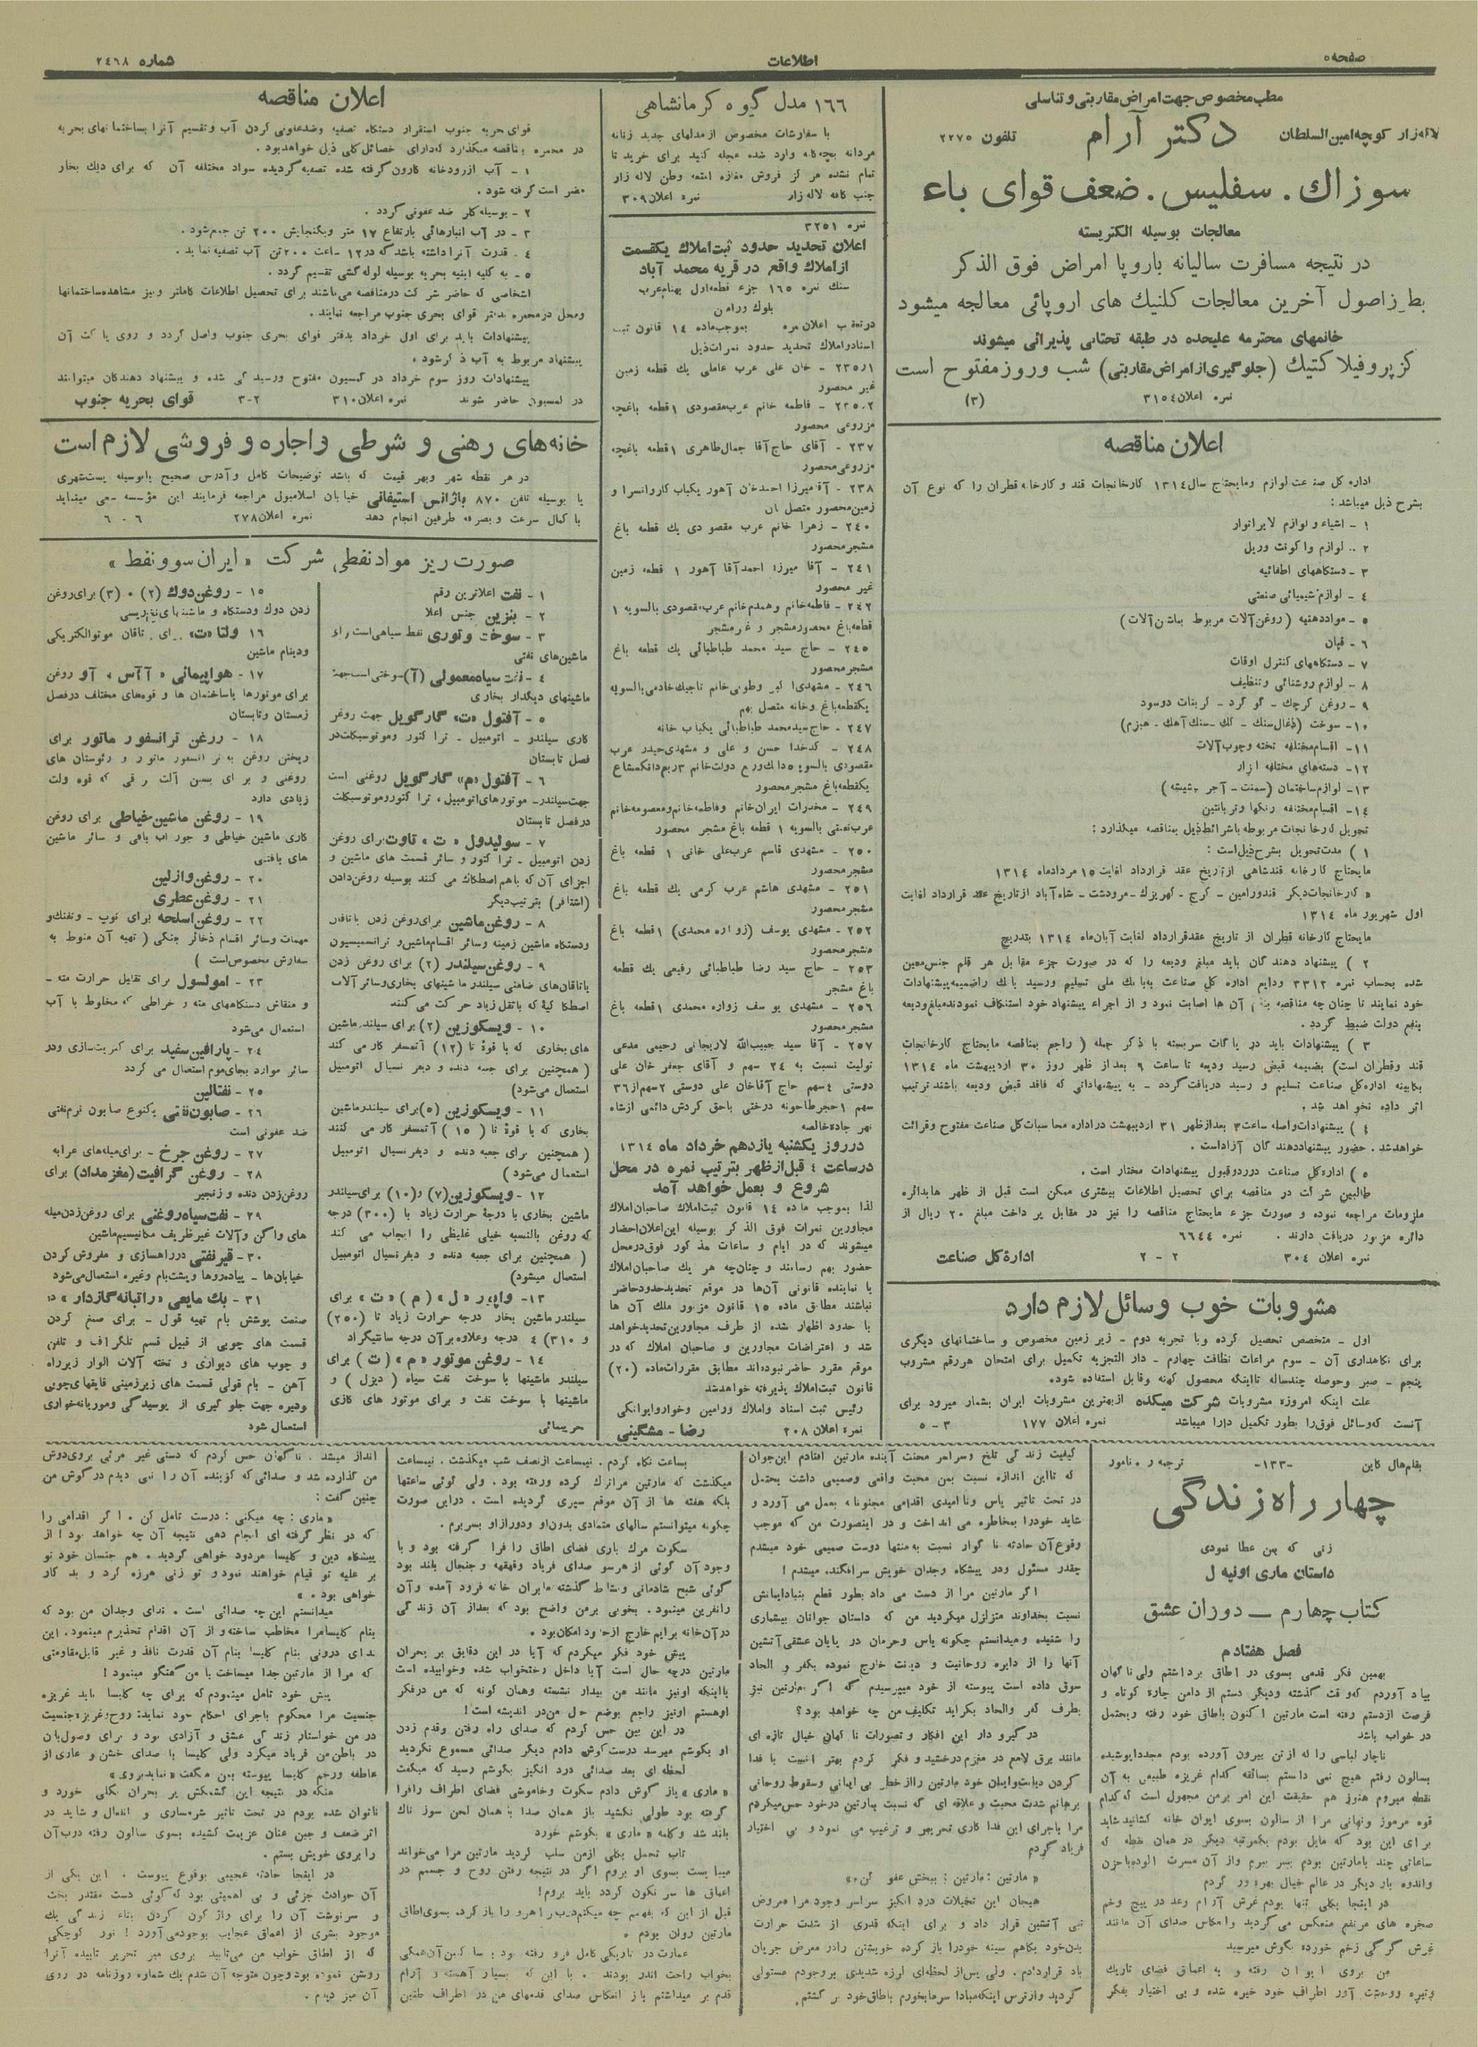 صفحه ۵
اطلاعات
شماره ۲۴۶۸
مطب مخصوص جهت امراض مقاربتی و تناسلی
لاله زار کوچه امین السلطان
دکتر آرام
تلفون ۲۲۷۵
سوزاك . سفلیس . ضعف قوای باء
معالجات بوسیله الکتریسته
در نتیجه مسافرت سالیانه باروپا امراض فوق الذکر
بطرز اصول آخرین معالجات کلنیك های اروپائی معالجه میشود
خانمهای محترمه علیحده در طبقه تحتانی پذیرائی میشوند
کز پروفیلاکتیك (جلوگیری از امراض مقاربتی) شب و روز مفتوح است
نمره اعلان ۳۱۵۴ (۳)
اعلان مناقصه
اداره کل صناعت لوازم و مایحتاج سال ۱۳۱۴ کارخانجات قند و کارخانه قطران را که نوع آن
بشرح ذیل میباشد :
۱ - اشیاء و لوازم لابراتوار
۲ - لوازم واگونت و ریل
۳ - دستگاههای اطفائیه
۴ - لوازم شیمیائی صنعتی
۵ - مواد دهنیه (روغن آلات مربوط بماشن آلات)
۶ - قپان
۷ - دستگاههای کنترل اوقات
۸ - لوازم روشنائی و تنظیف
۹ - روغن کرچك - گو گرد - کربنات دوسود
۱۰ - سوخت (ذغال سنك - كك - سنك آهك - هیزم)
۱۱ - اقسام مختلفه تخته و چوب آلات
۱۲ - دسته های مختلفه ابزار
۱۳ - لوازم ساختمان (سمنت - آجر - شیشه)
۱۴ - اقسام مختلفه رنگها و تربانتین
تحویل کارخانجات مربوطه با شرائط ذیل بمناقصه میگذارد :
۱ ) مدت تحویل بشرح ذیل است :
مایحتاج کارخانه قند شاهی از تاریخ عقد قرارداد لغایت ۱۵ مرداد ماه ۱۳۱۴
« کارخانجات دیگر قند ورامین - کرج - کهریزك - مرودشت - شاه آباد از تاریخ عقد قرارداد لغایت
اول شهریور ماه ۱۳۱۴
مایحتاج کارخانه قطران از تاریخ عقد قرارداد لغایت آبان ماه ۱۳۱۴ بتدریج
۲ ) پیشنهاد دهندگان باید مبلغ ودیعه را که در صورت جزء مقابل هر قلم جنس معین
شده بحساب نمره ۳۳۱۲ ودایع اداره کل صناعت به بانك ملی تسلیم و رسید بانك را ضمیمه پیشنهادات
خود نمایند تا چنانچه مناقصه بنام آن ها اصابت نمود و از اجراء پیشنهاد خود استنکاف نمودند مبلغ ودیعه
بنفع دولت ضبط گردد .
۳ ) پیشنهادات باید در پاکات سربسته با ذکر جمله ( راجع بمناقصه مایحتاج کارخانجات
قند و قطران است) بضمیمه قبض رسید ودیعه تا ساعت ۹ بعد از ظهر روز ۳۰ اردیبهشت ماه ۱۳۱۴
بکابینه اداره کل صناعت تسلیم و رسید دریافت گردد - به پیشنهاداتی که فاقد قبض ودیعه باشند ترتیب
اثر داده نخواهد شد .
۴ ) پیشنهادات واصله ساعت ۳ بعد از ظهر ۳۱ اردیبهشت در اداره محاسبات کل صناعت مفتوح و قرائت
خواهد شد . حضور پیشنهاد دهندگان آزاد است .
۵ ) اداره کل صناعت در رد و قبول پیشنهادات مختار است .
طالبین شرکت در مناقصه برای تحصیل اطلاعات بیشتری ممکن است قبل از ظهر ها بدائره
ملزومات مراجعه نموده و صورت جزء مایحتاج مناقصه را نیز در مقابل پرداخت مبلغ ۲۰ ریال از
دائره مزبور دریافت دارند . نمره ۶۶۴۴
نمره اعلان ۳۰۴ ۲ - ۲ اداره کل صناعت
مشروبات خوب وسائل لازم دارد
اول - متخصص تحصیل کرده و با تجربه دوم - زیر زمین مخصوص و ساختمانهای دیگری
برای نگاهداری آن - سوم مراعات نظافت چهارم - دار التجزیه تکمیل برای امتحان هر رقم مشروب
پنجم - صبر و حوصله چند ساله تا اینکه محصول کهنه و قابل استفاده شود .
علت اینکه امروزه مشروبات شرکت میکده از بهترین مشروبات ایران بشمار میرود برای
آنست که وسائل فوق را بطور تکمیل دارا میباشد نمره اعلان ۱۷۷ ۳ - ۵
۱۶۶ مدل گیوه کرمانشاهی
با سفارشات مخصوص از مدلهای جدید زنانه
مردانه بچه گانه وارد شده عجله کنید برای خرید تا
تمام نشده مرکز فروش مغازه امتعه وطن لاله زار
جنب کافه لاله زار نمره اعلان ۳۰۹
نمره ۳۲۵۱
اعلان تحدید حدود ثبت املاك یکقسمت
از املاك واقع در قریه محمد آباد
سنك نمره ۱۶۵ جزء قطعه اول بهنام عرب
بلوك ورامین
در تعقیب اعلان نمره بموجب ماده ۱۴ قانون ثبت
اسناد و املاك تحدید حدود نمرات ذیل
۲۳۵/۱ - خان علی عرب عاملی یك قطعه زمین
غیر محصور
۲۳۵/۲ - فاطمه خانم عرب مقصودی ۱ قطعه باغچه
مزروعی محصور
۲۳۷ - آقای حاج آقا جمال طاهری ۱ قطعه باغچه
مزروعی محصور
۲۳۸ - آقا میرزا احمد خان آهور یکباب کاروانسرا و
زمین محصور متصل بآن
۲۴۰ - زهرا خانم عرب مقصودی یك قطعه باغ
مشجر محصور
۲۴۱ - آقا میرزا احمد آقا آهور ۱ قطعه زمین
غیر محصور
۲۴۲ - فاطمه خانم و همدم خانم عرب مقصودی بالسویه ۱
قطعه باغ محصور مشجر و غیر مشجر
۲۴۵ - حاج سید محمد طباطبائی یك قطعه باغ
مشجر محصور
۲۴۶ - مشهدی اکبر و طوبی خانم تاجیك خادمی بالسویه
یکقطعه باغ و خانه متصل بهم
۲۴۷ - حاج سید محمد طباطبائی یکباب خانه
۲۴۸ - کدخدا حسن و علی و مشهدی حیدر عرب
یکقطعه باغ مشجر محصور
۲۴۹ - مخدرات ایران خانم و فاطمه خانم و معصومه خانم
بالسویه ۱ قطعه باغ مشجر محصور
۲۵۰ - مشهدی قاسم عرب علی خانی ۱ قطعه باغ
مشجر محصور
۲۵۱ - مشهدی هاشم عرب کرمی یك قطعه باغ
مشجر محصور
۲۵۲ - مشهدی یوسف (زواره محمدی) ۱ قطعه باغ
مشجر محصور
۲۵۳ - حاج سید رضا طباطبائی رفیعی یك قطعه
باغ مشجر
۲۵۶ - مشهدی یوسف زواره محمدی ۱ قطعه باغ
مشجر محصور
۲۵۷ - آقا سید حبیب الله لاریجانی رحیمی مدعی
تولیت نسبت به ۲۴ سهم و آقای جعفر خان علی
دوستی ۴ سهم حاج آقاخان علی دوستی ۲ سهم از ۳۶
سهم ۱ حجر طاحونه درختی با حق گردش دائمی از شاه
نهر جاده خالصه
در روز یکشنبه یازدهم خرداد ماه ۱۳۱۴
در ساعت ۴ قبل از ظهر بترتیب نمره در محل
شروع و بعمل خواهد آمد
لذا بموجب ماده ۱۴ قانون ثبت املاك صاحبان املاك
مجاورین نمرات فوق الذکر بوسیله این اعلان احضار
میشوند که در ایام و ساعات مذکور فوق در محل
حضور بهم رسانند و چنانچه هر یك از صاحبان املاك
یا نماینده قانونی آن ها در موقع تحدید حدود حاضر
نباشند مطابق ماده ۱۵ قانون مزبور ملك آن ها
با حدود اظهار شده از طرف مجاورین تحدید خواهد
شد و اعتراضات مجاورین و صاحبان املاك که در
موقع مقرر حاضر نبوده اند مطابق مقررات ماده (۲۰)
قانون ثبت املاك پذیرفته خواهد شد
رئیس ثبت اسناد و املاك ورامین و خوار و ایوانکی
نمره اعلان ۲۰۸ رضا - مشگینی
اعلان مناقصه
قوای بحریه جنوب استقرار دستگاه تصفیه و ضد عفونی کردن آب و تقسیم آنرا بساختمانهای بحریه
در محمره بمناقصه میگذارد که دارای خصائل کلی ذیل خواهد بود .
۱ - آب از رودخانه کارون گرفته شده تصفیه گردیده مواد مختلفه آن که برای دیك بخار
مضر است گرفته شود .
۲ - بوسیله کلر ضد عفونی گردد .
۳ - در آب انبارهائی بارتفاع ۱۷ متر و بگنجایش ۲۰۰ تن جمع شود .
۴ - قدرت آنرا داشته باشد که در ۱۲ ساعت ۲۰۰ تن آب تصفیه نماید .
۵ - به کلیه ابنیه بحریه بوسیله لوله کشی تقسیم گردد .
اشخاصی که حاضر شرکت در مناقصه می باشند برای تحصیل اطلاعات کاملتر و نیز مشاهده ساختمانها
و محل در محمره بدفتر قوای بحری جنوب مراجعه نمایند .
پیشنهادات باید برای اول خرداد بدفتر قوای بحری جنوب واصل گردد و روی پاکت آن
پیشنهاد مربوط به آب ذکر شود .
پیشنهادات روز سوم خرداد در کمیسیون مفتوح و رسیدگی شده و پیشنهاد دهندگان میتوانند
در کمسیون حاضر شوند نمره اعلان ۳۱۰ ۲-۳ قوای بحریه جنوب
خانه های رهنی و شرطی و اجاره و فروشی لازم است
در هر نقطه شهر و بهر قیمت که باشد توضیحات کامل و آدرس صحیح یا بوسیله پست شهری
یا بوسیله تلفن ۸۷۰ باژانس استیفانی خیابان اسلامبول مراجعه فرمایند این مؤسسه سعی مینماید
با کمال سرعت و بصرفه طرفین انجام دهد نمره اعلان ۲۷۸ ۶ - ۶
صورت ریز مواد نفطی شرکت « ایران سوو نفط »
۱ - نفت اعلاترین رقم
۲ - بنزین جنس اعلا
۳ - سوخت و توری نفط سیاهی است برای
ماشین های نفتی
۴ - نفت سیاه معمولی (آ) سوختی است جهة
ماشینهای دیگدار بخاری
۵ - آفتول «ت» گارگویل جهت روغن
کاری سیلندر - اتومبیل - تراکتور و موتوسیکلت در
فصل تابستان
۶ - آفتول «م» گارگویل روغنی است
جهت سیلندر - موتورهای اتومبیل ، تراکتور و موتوسیکلت
در فصل تابستان
۷ - سولیدول « ت » تاوت برای روغن
زدن اتومبیل - تراکتور و سائر قسمت های ماشین و
اجزای آن که باهم اصطکاك می کنند بوسیله روغن دادن
(اشتافر) بترتیب دیگر
۸ - روغن ماشین برای روغن زدن یاتاقان
و دستگاه ماشین زمینه و سائر اقسام ماشین و ترانسمیسیون
۹ - روغن سیلندر (۲) برای روغن زدن
یاتاقان های ضامنی سیلندر ماشینهای بخاری و سائر آلات
اصطکاکیه که با ثقل زیاد حرکت می کنند
۱۰ - ویسکوزین (۳) برای سیلندر ماشین
های بخاری که با قوة تا (۱۲) آتمسفر کار می کند
( همچنین برای جعبه دنده و دیفرنسیال اتومبیل
استعمال می شود)
۱۱ - ویسکوزین (۵) برای سیلندر ماشین
بخاری که با قوة تا ( ۱۵ ) آتمسفر کار می کنند
( همچنین برای جعبه دنده و دیفرنسیال اتومبیل
استعمال می شود)
۱۲ - ویسکوزین (۷) و (۱۰) برای سیلندر
ماشین بخاری با درجه حرارت زیاد با (۳۰۰) درجه
که روغن بالنسبه خیلی غلیظی را ایجاب می کند
( همچنین برای جعبه دنده و دیفرنسیال اتومبیل
استعمال میشود)
۱۳ - واپور « ل » ( م ) « ت » برای
سیلندر ماشین بخار درجه حرارت زیاد تا (۲۵۰)
و ۳۱۰) درجه و علاوه بر آن درجه سانتیگراد
۱۴ - روغن موتور « م » ( ت ) برای
سیلندر ماشینها با سوخت نفت سیاه ( دیزل ) و
ماشینها با سوخت نفت و برای موتور های گازی
۱۵ - روغن دوك (۲) و (۳) برای روغن
زدن دوك و دستگاه و ماشینهای نخ ریسی
۱۶ ولتا «ت» برای یاتاقان موتور الکتریکی
و دینام ماشین
۱۷ - هواپیمائی « آآس » آو روغن
برای موتورها با ساختمان ها و قوه های مختلف در فصل
زمستان و تابستان
۱۸ - روغن ترانسفور ماتور برای
ریختن روغن به ترانسفور ماتور و رئوستان های
روغنی و برای بعضی آلات برقی که قوه ولت
زیادی دارد
۱۹ - روغن ماشین خیاطی برای روغن
کاری ماشین خیاطی و جوراب بافی و سائر ماشین
های بافتنی
۲۰ - روغن وازلین
۲۱ - روغن عطری
۲۲ - روغن اسلحه برای توپ - و تفنك و
مهمات و سائر اقسام ذخائر جنگی ( تهیه آن منوط به
سفارش مخصوص است )
۲۳ - امولسول برای تقلیل حرارت مته -
و منقاش دستگاههای مته و خراطی که مخلوط با آب
استعمال می شود
۲۴ - پارافین سفید برای کبریت سازی و در
سائر موارد بجای موم استعمال می گردد
۲۵ - نفتالین
۲۶ - صابون نفتی یکنوع صابون نرم نفتی
ضد عفونی است
۲۷ - روغن چرخ - برای میله های عرابه
۲۸ - روغن گرافیت (مغز مداد) برای
روغن زدن دنده و زنجیر
۲۹ - نفت سیاه روغنی برای روغن زدن میله
های واگن و آلات غیر ظریف مکانیسم ماشین
۳۰ - قیر نفتی در راهسازی و مفروش کردن
خیابان ها - پیاده روها و پشت بام و غیره استعمال می شود
۳۱ - بك مایعی «راتبانه گازدار» در
صنعت پوشش بام تهیه قولی - برای صمغ کردن
قسمت های چوبی از قبیل قسم تلگراف و تلفن
و چوب های دیواری و تخته آلات الوار زیر راه
آهن - بام قولی قسمت های زیر زمینی قایقهای چوبی
و غیره جهت جلوگیری از پوسیدگی و موریانه خواری
استعمال شود
بقلم هال کاین -۱۳۳-
چهار راه زندگی
زنی که بمن عطا نمودی
داستان ماری اونیه ل
کتاب چهارم — دوران عشق
فصل هفتادم
بهمین فکر قدمی بسوی در اطاق برداشتم ولی ناگهان
بیاد آوردم که وقت گذشته و دیگر دستم از دامن چاره کوتاه و
فرصت از دستم رفته است مارتین اکنون باطاق خود رفته و یحتمل
در خواب باشد
ناچار لباسی را که از تن بیرون آورده بودم مجددا پوشیده
بسالون رفتم هیچ نمی دانستم بسائقه کدام غریزه طبیعی به آن
نقطه میروم هنوز هم حقیقت این امر بر من مجهول است که کدام
قوه مرموز و نهانی مرا از سالون بسوی ایوان خانه کشانید شاید
برای این بود که مایل بودم بکمرتبه دیگر در همان نقطه که
ساعاتی چند با مارتین بودم بسر ببرم و از آن مسرت آلوده با حزن
و اندوه بار دیگر در عالم خیال بهره ور گردم
در اینجا بکلی تنها بودم غرش آرام رعد در پیچ و خم
صخره های مرتفع منعکس می گردید و انعکاس صدای آن مانند
غرش گرگی زخم خورده بگوش میرسید
من بروی ایوان رفته و به اعماق فضای تاریك
و تیره و وحشت آور اطراف خود خیره شده و بی اختیار بفکر
کیفیت زندگی تلخ و سراسر محنت آینده مارتین افتادم این جوان
که تا این اندازه نسبت بمن محبت واقعی و صمیمی داشت یحتمل
در تحت تاثیر یاس و ناامیدی اقدامی مجنونانه بعمل می آورد و
شاید خود را بمخاطره می انداخت و در اینصورت من که موجب
وقوع آن حادثه ناگوار نسبت به منتها دوست صمیمی خود میشدم
چقدر مسئول و در پیشگاه وجدان خویش سرافکنده میشدم !
اگر مارتین مرا از دست می داد بطور قطع بنیاد ایمانش
نسبت بخداوند متزلزل میگردید من که داستان جوانان بیشماری
را شنیده و میدانستم چگونه یاس و حرمان در پایان عشقی آتشین
آنها را از دایره روحانیت و دیانت خارج نموده بکفر و الحاد
سوق داده است پیوسته از خود میپرسیدم که اگر مارتین نیز
بطرف کفر و الحاد بگراید تکلیف من چه خواهد بود؟
در گیر و دار این افکار و تصورات ناگهان خیال تازه ای
مانند برق لامع در مغزم درخشید و فکر کردم بهتر است با فدا
کردن دیانت و ایمان خود مارتین را از خطر بی ایمانی و سقوط روحانی
برهانم شدت محبت و علاقه ای که نسبت بمارتین در خود حس میکردم
مرا باجرای این فدا کاری تحریص و ترغیب می نمود و بی اختیار
فریاد کردم
« مارتین ! مارتین ! ببخش عفو کن »
هیجان این تخیلات درد انگیز سراسر وجود مرا معروض
تبی آتشین قرار داد و برای اینکه قدری از شدت حرارت
بدن خود بکاهم سینه خود را باز کرده خویشتن را در معرض جریان
باد قرار دادم . ولی پس از لحظه ای لرزه شدیدی بر وجودم مستولی
گردید و از ترس اینکه مبادا سرما بخورم باطاق خود برگشتم .
بساعت نگاه کردم . نیمساعت از نصف شب میگذشت . نیمساعت
میگذشت که مارتین مرا ترك کرده و رفته بود . ولی گوئی ساعتها
بلکه هفته ها از آن موقع سپری گردیده است . در این صورت
چگونه میتوانستم سالهای متمادی بدون او و دور از او بسر برم .
سکوت مرك باری فضای اطاق را فرا گرفته بود و با
وجود آن گوئی از هر سو صدای فریاد و قهقهه و جنجال بلند بود
گوئی شبح شادمانی و نشاط گذشته ما بر ان خانه فرود آمده و آن
را نفرین مینمود . بخوبی بر من واضح بود که بعد از آن زندگی
در آن خانه برایم خارج از حدود امکان بود .
پیش خود فکر میکردم که آیا در این دقایق بر بحران
مارتین درچه حال است آیا داخل رختخواب شده و خوابیده است
یا اینکه او نیز مانند من بیدار نشسته و همان گونه که من در فکر
او هستم او نیز راجع بوضع حال من در اندیشه است !
در این بین حس کردم که صدای راه رفتن و قدم زدن
او بگوشم میرسد درست گوش دادم دیگر صدائی مسموع نگردید
لحظه ای بعد صدائی درد انگیز بگوشم رسید که میگفت
« ماری » باز گوش دادم سکوت و خاموشی فضای اطراف را فرا
گرفته بود طولی نکشید باز همان صدا با همان لحن سوزناك
بلند شد و کلمه « ماری » بگوشم خورد
تاب تحمل بکلی از من سلب گردید مارتین مرا می خواند
میبایست بسوی او بروم اگر در نتیجه رفتن روح و جسم در
اعماق ها سرنگون گردد باید بروم !
قبل از این که بفهمم چه میکنم درب راهرو را باز کرده بسوی اطاق
مارتین روان بودم »
عمارت در تاریکی کامل فرو رفته بود ؛ ساکنین آن همگی
بخواب راحت اندر بودند . با این که بسیار آهسته و آرام
قدم بر میداشتم باز انعکاس صدای قدمهای من در اطراف طنین
انداز میشد . ناگهان حس کردم که دستی غیر مرئی بروی دوش
من گذارده شد و صدائی که گوینده آن را نمی دیدم در گوش من
چنین گفت :
« ماری ! چه میکنی ؛ درست تامل کن . اگر اقدامی را
که در نظر گرفته ای انجام دهی نتیجه آن چه خواهد بود ! از
پیشگاه دین و کلیسا مردود خواهی گردید . هم جنسان خود تو
بر علیه تو قیام خواهند نمود و تو زنی هرزه گرد و بد کار
خواهی بود . »
میدانستم این چه صدائی است . ندای وجدان من بود که
بنام کلیسا مرا مخاطب ساخته و از آن اقدام تحذیرم مینمود . این
ندای درونی بنام کلیسا بنام آن قدرت نافذ و غیر قابل مقاومتی
که مرا از مارتین جدا میساخت با من گفتگو مینمود !
پیش خود تامل مینمودم که برای چه کلیسا باید غریزه
جنسیت مرا محکوم باجرای احکام خود نماید : روح و غریزه جنسیت
در من خواستار زندگی عشق و آزادی بود و برای وصول بآن
در باطن من فریاد میکرد ولی کلیسا با صدای خشن و عاری از
عاطفه و رحم کلیسا پیوسته بمن میگفت « نباید بروی »
منکه در نتیجه این کشمکش پر بحران بکلی خورد و
ناتوان شده بودم در تحت تاثیر شرمساری و انفعال و شاید در
اثر ضعف و جبن عنان عزیمت کشیده بسوی سالون رفته درب آن
را بروی خویش بستم .
در اینجا حادثه عجیبی بوقوع پیوست . این یکی از
آن حوادث جزئی و بی اهمیتی بود که گوئی دست مقتدر بخت
و سرنوشت آن را برای واژگون کردن بناء زندگی یك
موجود بشری از اعماق عجایب بوجود می آورد ! نور کوچکی
که از اطاق خواب من می تابید بروی میز تحریر تابیده آنرا
روشن نموده بود و چون متوجه آن شدم یك شماره روزنامه در روی
آن میز دیدم .